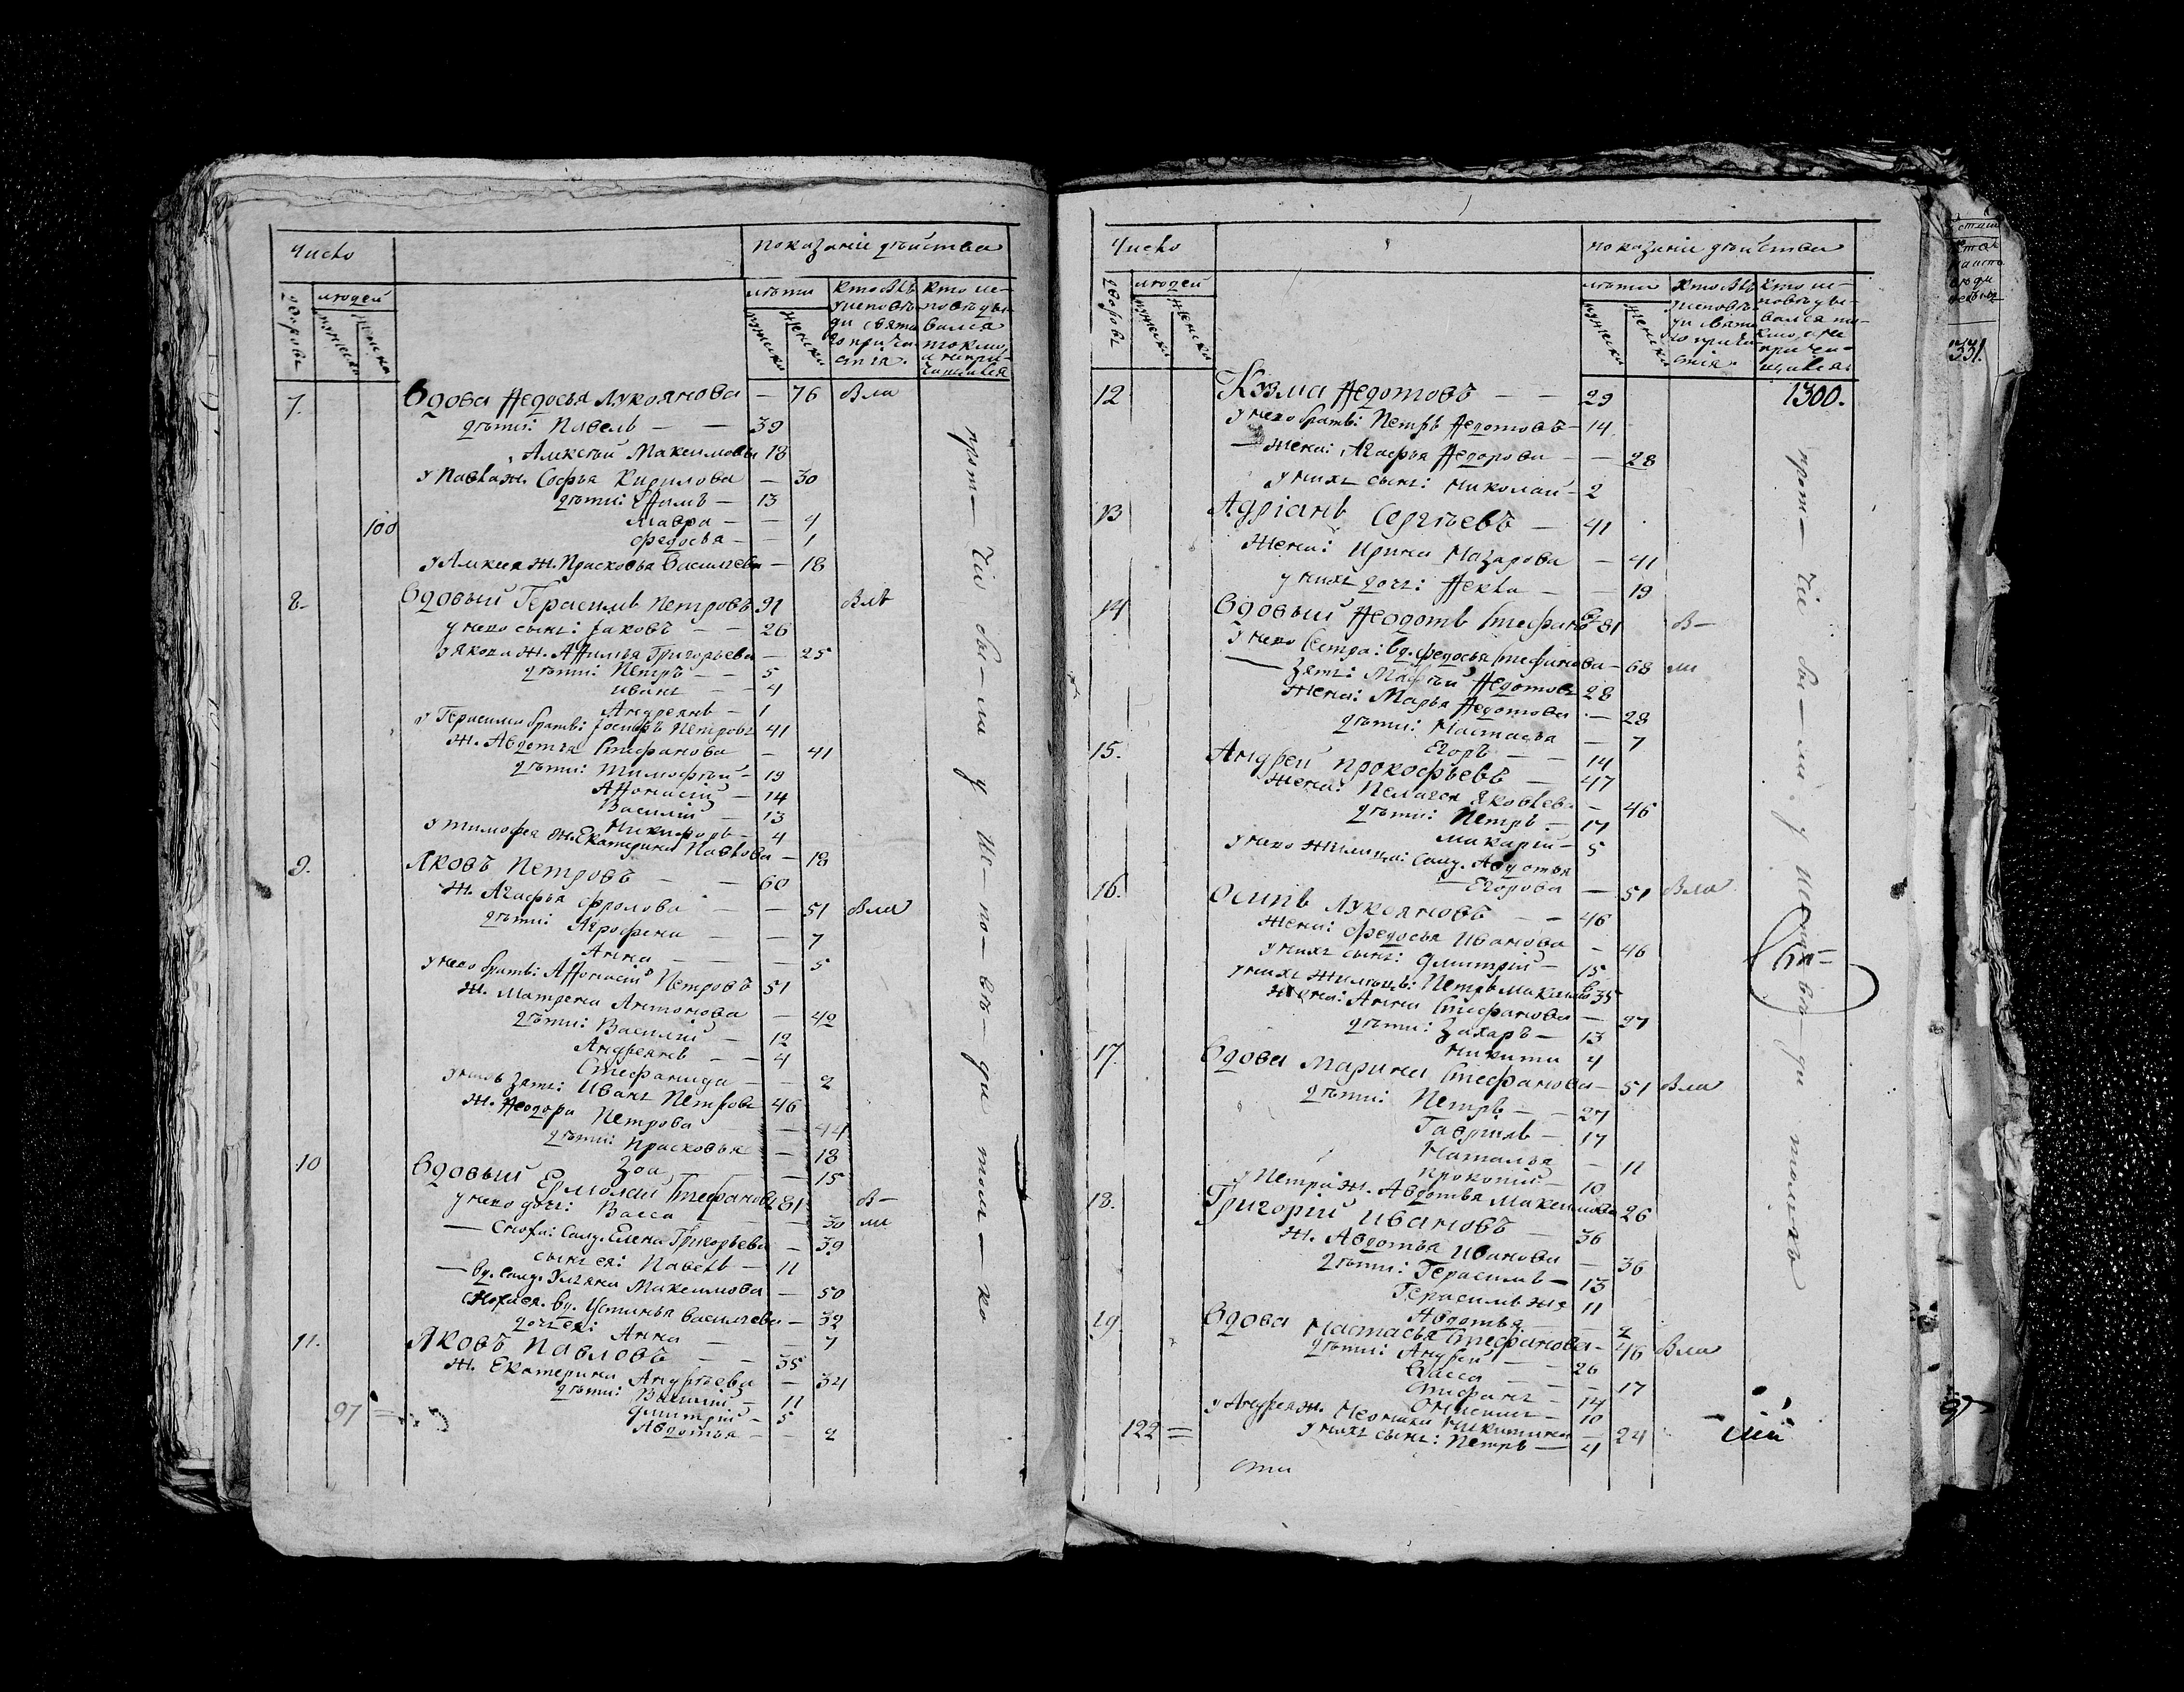 Число показанiи дѣиства
дворовъ людей лѣта
мужеска женска мужеска женска
7. Вдова Ѳедосья Лукоянова — 76 была
дѣти: Павелъ — — 39
Алексѣй Максимовы 18
у Павла ж. Софья Кирилова — 30
дѣти: Еѳимъ — 13
100 Мавра — — 4
Федосья — — 1
у Алексея ж. Прасковья Васильева — 18
8. Вдовый Герасимъ Петровъ 91 былъ
у него сынъ: Iаковъ — — 26
у Якова ж. Аѳимья Григорьева — 25
дѣти: Петръ — — 5
Иванъ — — 4
Андреянъ — 1
у Герасима братъ: Iосифъ Петровъ 41
ж. Авдотья Стефанова — 41
дѣти: Тимофѣй — 19
Аѳонасiй — 14
Василiй — 13
Никифоръ — 4
у Тимофея ж. Екатерина Павлова — 18
9. Яковъ Петровъ — — 60
ж. Агафья Фролова — — 51 была
дѣти: Агрофена — — 7
Анна — — — 5
у него братъ: Аѳонасiй Петровъ 51
ж. Матрена Антонова — 42
дѣти: Василiй — 12
Андреянъ — — 4
Стефанида — — 2
у нихъ зять: Иванъ Петровъ 46
ж. Ѳеодора Петрова — 44
дѣти: Прасковья — 18
Зоя — 15
10 Вдовый Ермолай Стефановъ 81 бы-
у него дочь: Васса — — 30 ли
— Сноха: солд. Елена Григорьева — 39
сынъ ея: Павелъ — 11
— вд. солд. Ульяна Максимова — 50
Сноха ея. вд. Устинья Васильева — 32
дочь ея: Анна — — 7
11. Яковъ Павловъ — — 35
ж. Екатерина Андрѣева — 34
дѣти: Василiй — 11
97 = Дмитрiй — 5
Авдотья — — 2
прот— чiи бы — ли у ис — по — вѣ — ди толь — ко
Число показанiи дѣиства
дворовъ людей лѣта
мужеска женска мужеска женска
1300.
12 Кузма Ѳедотовъ — — 29
у него братъ: Петръ Ѳедотовъ — 14
— жена: Агафья Ѳедорова — — 28
у нихъ сынъ: Николай — 2
13 Адрiанъ Сергѣевъ — 41
жена: Ирина Назарова — 41
у нихъ дочь: Ѳекла — — 19
14 Вдовый Ѳеодотъ Стефановъ 81 бы—
у него сестра: вд. Федосья Стефанова — 68 ли
— зять: Маѳѣй Ѳедотовъ 28
жена: Марья Ѳедотова — 28
дѣти: Настасья — 7
Егоръ — — 14
15. Андрей Прокофьевъ — 47
жена: Пелагея Яковлева — 46
дѣти: Петръ — 17
Макарiй — 5
у него жилица: солд. Авдотья
— Егорова — 51 была
16. Осипъ Лукояновъ — — 46
жена: Федосья Иванова — 46
у нихъ сынъ: Дмитрiй — 15
у нихъ жилецъ: Петръ Максимовъ 35
жена: Анна Стефанова — 27
дѣти: Захаръ — 13
Никита 4
17. Вдова Марина Стефанова — 51 была
дѣти: Петръ — — 27
Гаврилъ — 17
Наталья — 11
Прокопiй — 10
у Петра ж. Авдотья Максимова 26
18. Григорiй Ивановъ — 36
ж. Авдотья Иванова — 36
дѣти: Герасимъ — 13
Герасимъ же 11
Авдотья — 2
19. Вдова Настасья Стефанова — 46 была
дѣти: Андрей — — 26
Васса — — — 17
Стефанъ — 14
10
у Андрея ж. Неонила Никитина — 24
122 = у нихъ сынъ: Петръ — 4
прот — чiи бы — ли у испо — вѣ — ди только
331.